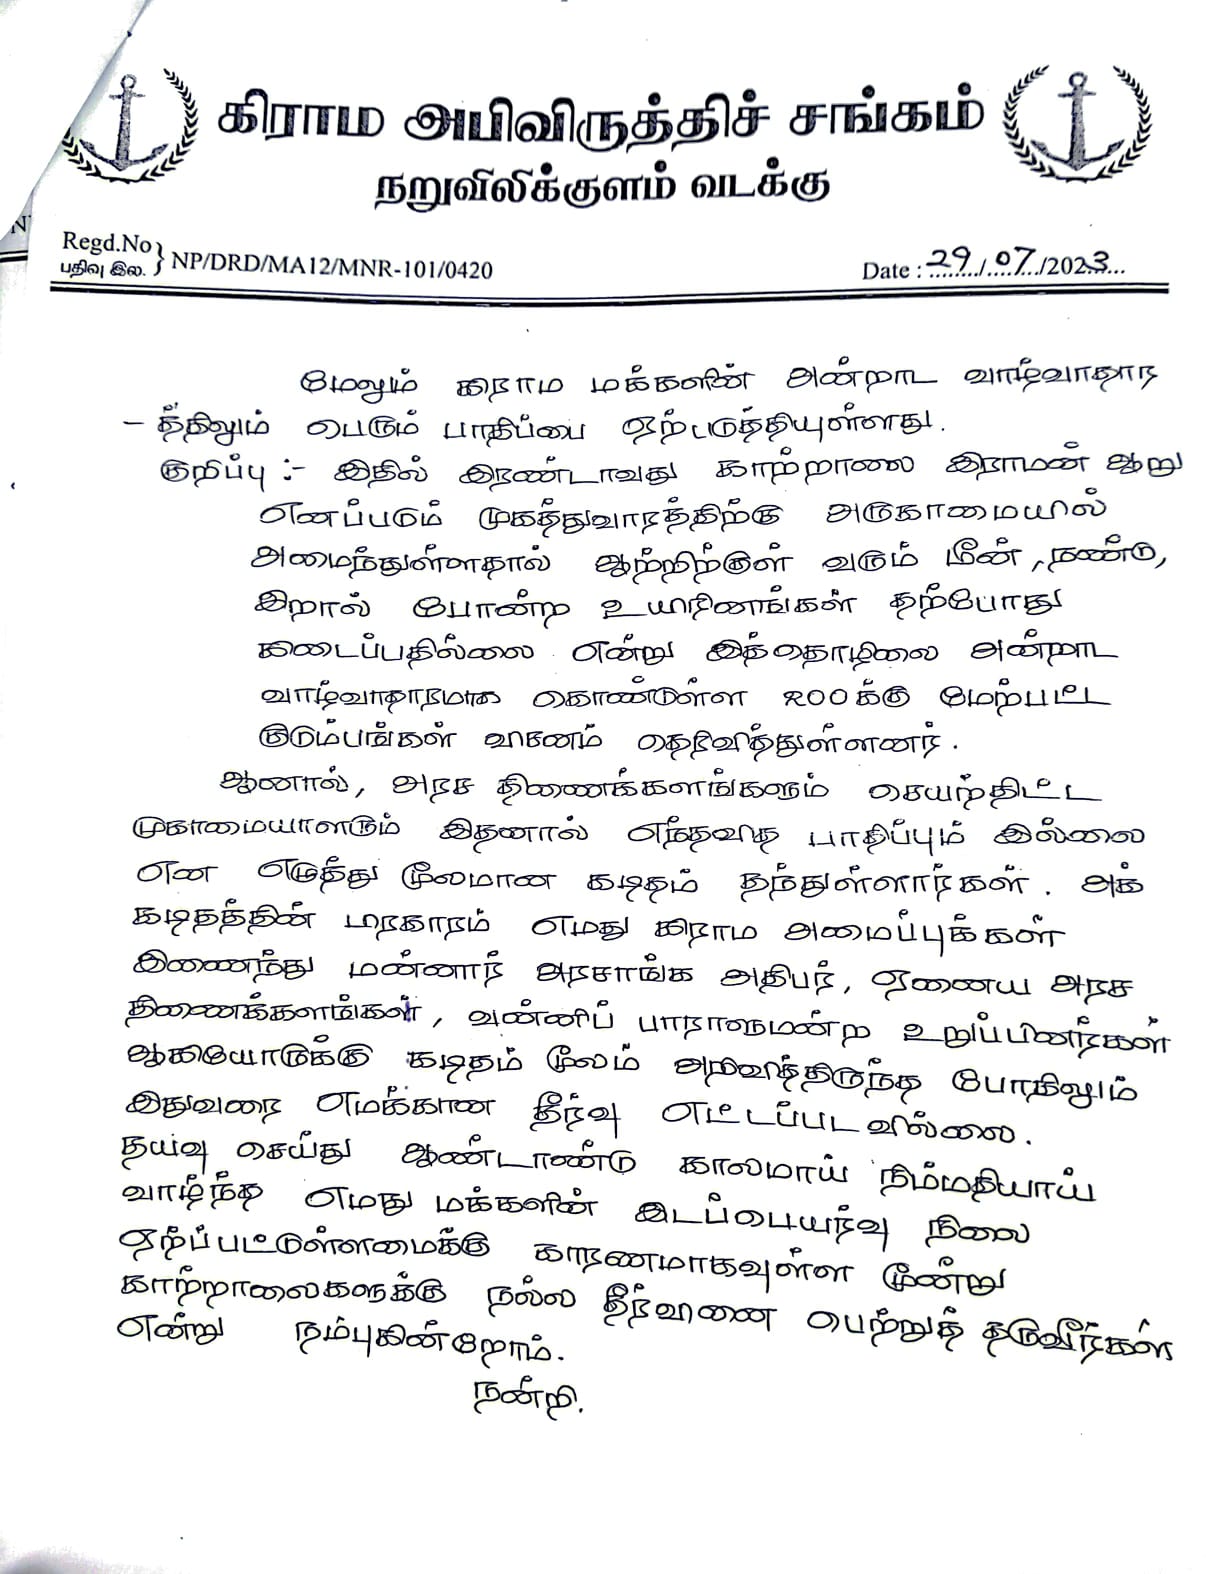 கிராம அபிவிருத்திச் சங்கம்
நறுவிலிக்குளம் வடக்கு
Regd.No
பதிவு இல. } NP/DRD/MA12/MNR-101/0420
Date : 29/07/2023
மேலும் கிராம மக்களின் அன்றாட வாழ்வாதார
- த்திலும் பெரும் பாதிப்பை ஏற்படுத்தியுள்ளது.
குறிப்பு :- இதில் இரண்டாவது காற்றாலை இராமன் ஆறு
எனப்படும் முகத்துவாரத்திற்கு அருகாமையில்
அமைந்துள்ளதால் ஆற்றிற்குள் வரும் மீன், நண்டு,
இறால் போன்ற உயிரினங்கள் தற்போது
கிடைப்பதில்லை என்று இத்தொழிலை அன்றாட
வாழ்வாதாரமாக கொண்டுள்ள 200க்கு மேற்பட்ட
குடும்பங்கள் விசனம் தெரிவித்துள்ளனர்.
ஆனால், அரச திணைக்களங்களும் செயற்திட்ட
முகாமையாளரும் இதனால் எந்தவித பாதிப்பும் இல்லை
என எழுத்து மூலமான கடிதம் தந்துள்ளார்கள். அக்
கடிதத்தின் பிரகாரம் எமது கிராம அமைப்புக்கள்
இணைந்து மன்னார் அரசாங்க அதிபர், ஏனைய அரச
திணைக்களங்கள், வன்னிப் பாராளுமன்ற உறுப்பினர்கள்
ஆகியோருக்கு கடிதம் மூலம் அறிவித்திருந்த போதிலும்
இதுவரை எமக்கான தீர்வு எட்டப்படவில்லை.
தயவு செய்து ஆண்டாண்டு காலமாய் நிம்மதியாய்
வாழ்ந்த எமது மக்களின் இடப்பெயர்வு நிலை
ஏற்ப்பட்டுள்ளமைக்கு காரணமாகவுள்ள மூன்று
காற்றாலைகளுக்கு நல்ல தீர்வினை பெற்றுத் தருவீர்கள்
என்று நம்புகின்றோம்.
நன்றி.